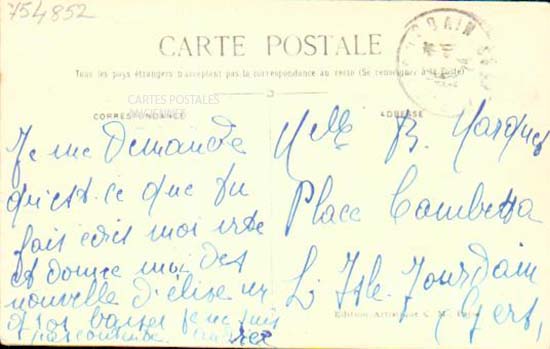 754852
CARTE POSTALE
Tous les pays étrangers n'acceptent pas la correspondance au recto (Se renseigner à la Poste)
CARTES POSTALES
ANCIENNES
CORRESPONDANCE
ADRESSE
Je me demande
qu'est-ce que tu
fais écris moi vite
et donne moi des
nouvelle d'élise un
gros baiser je me suis
pas
Melle B. Marques
Place Gambetta
L'Isle Jourdain
Gers
Edition Artistique C. M.